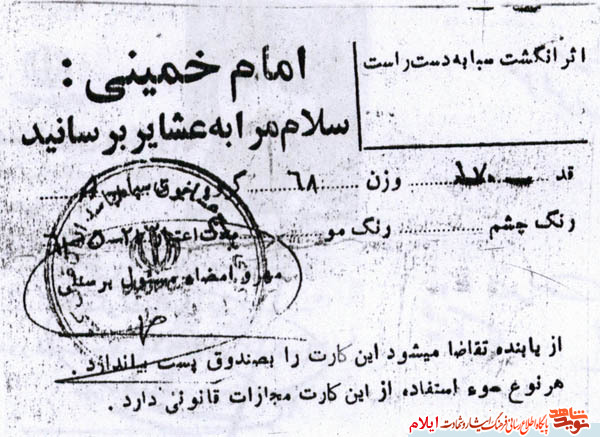 اثر انگشت سبابه دست راست
امام خمینی :
سلام مرا به عشایر برسانید
قد ۱۷۰ وزن ۶۸ گروه خون
رنگ چشم رنگ مو مدت اعتبار
مهر و امضاء مسئول پرسنلی
از یابنده تقاضا میشود این کارت را بصندوق پست بیاندازد .
هر نوع سوء استفاده از این کارت مجازات قانونی دارد .
نوید شاهد پایگاه اطلاع رسانی فرهنگ ایثار و شهادت ایلام